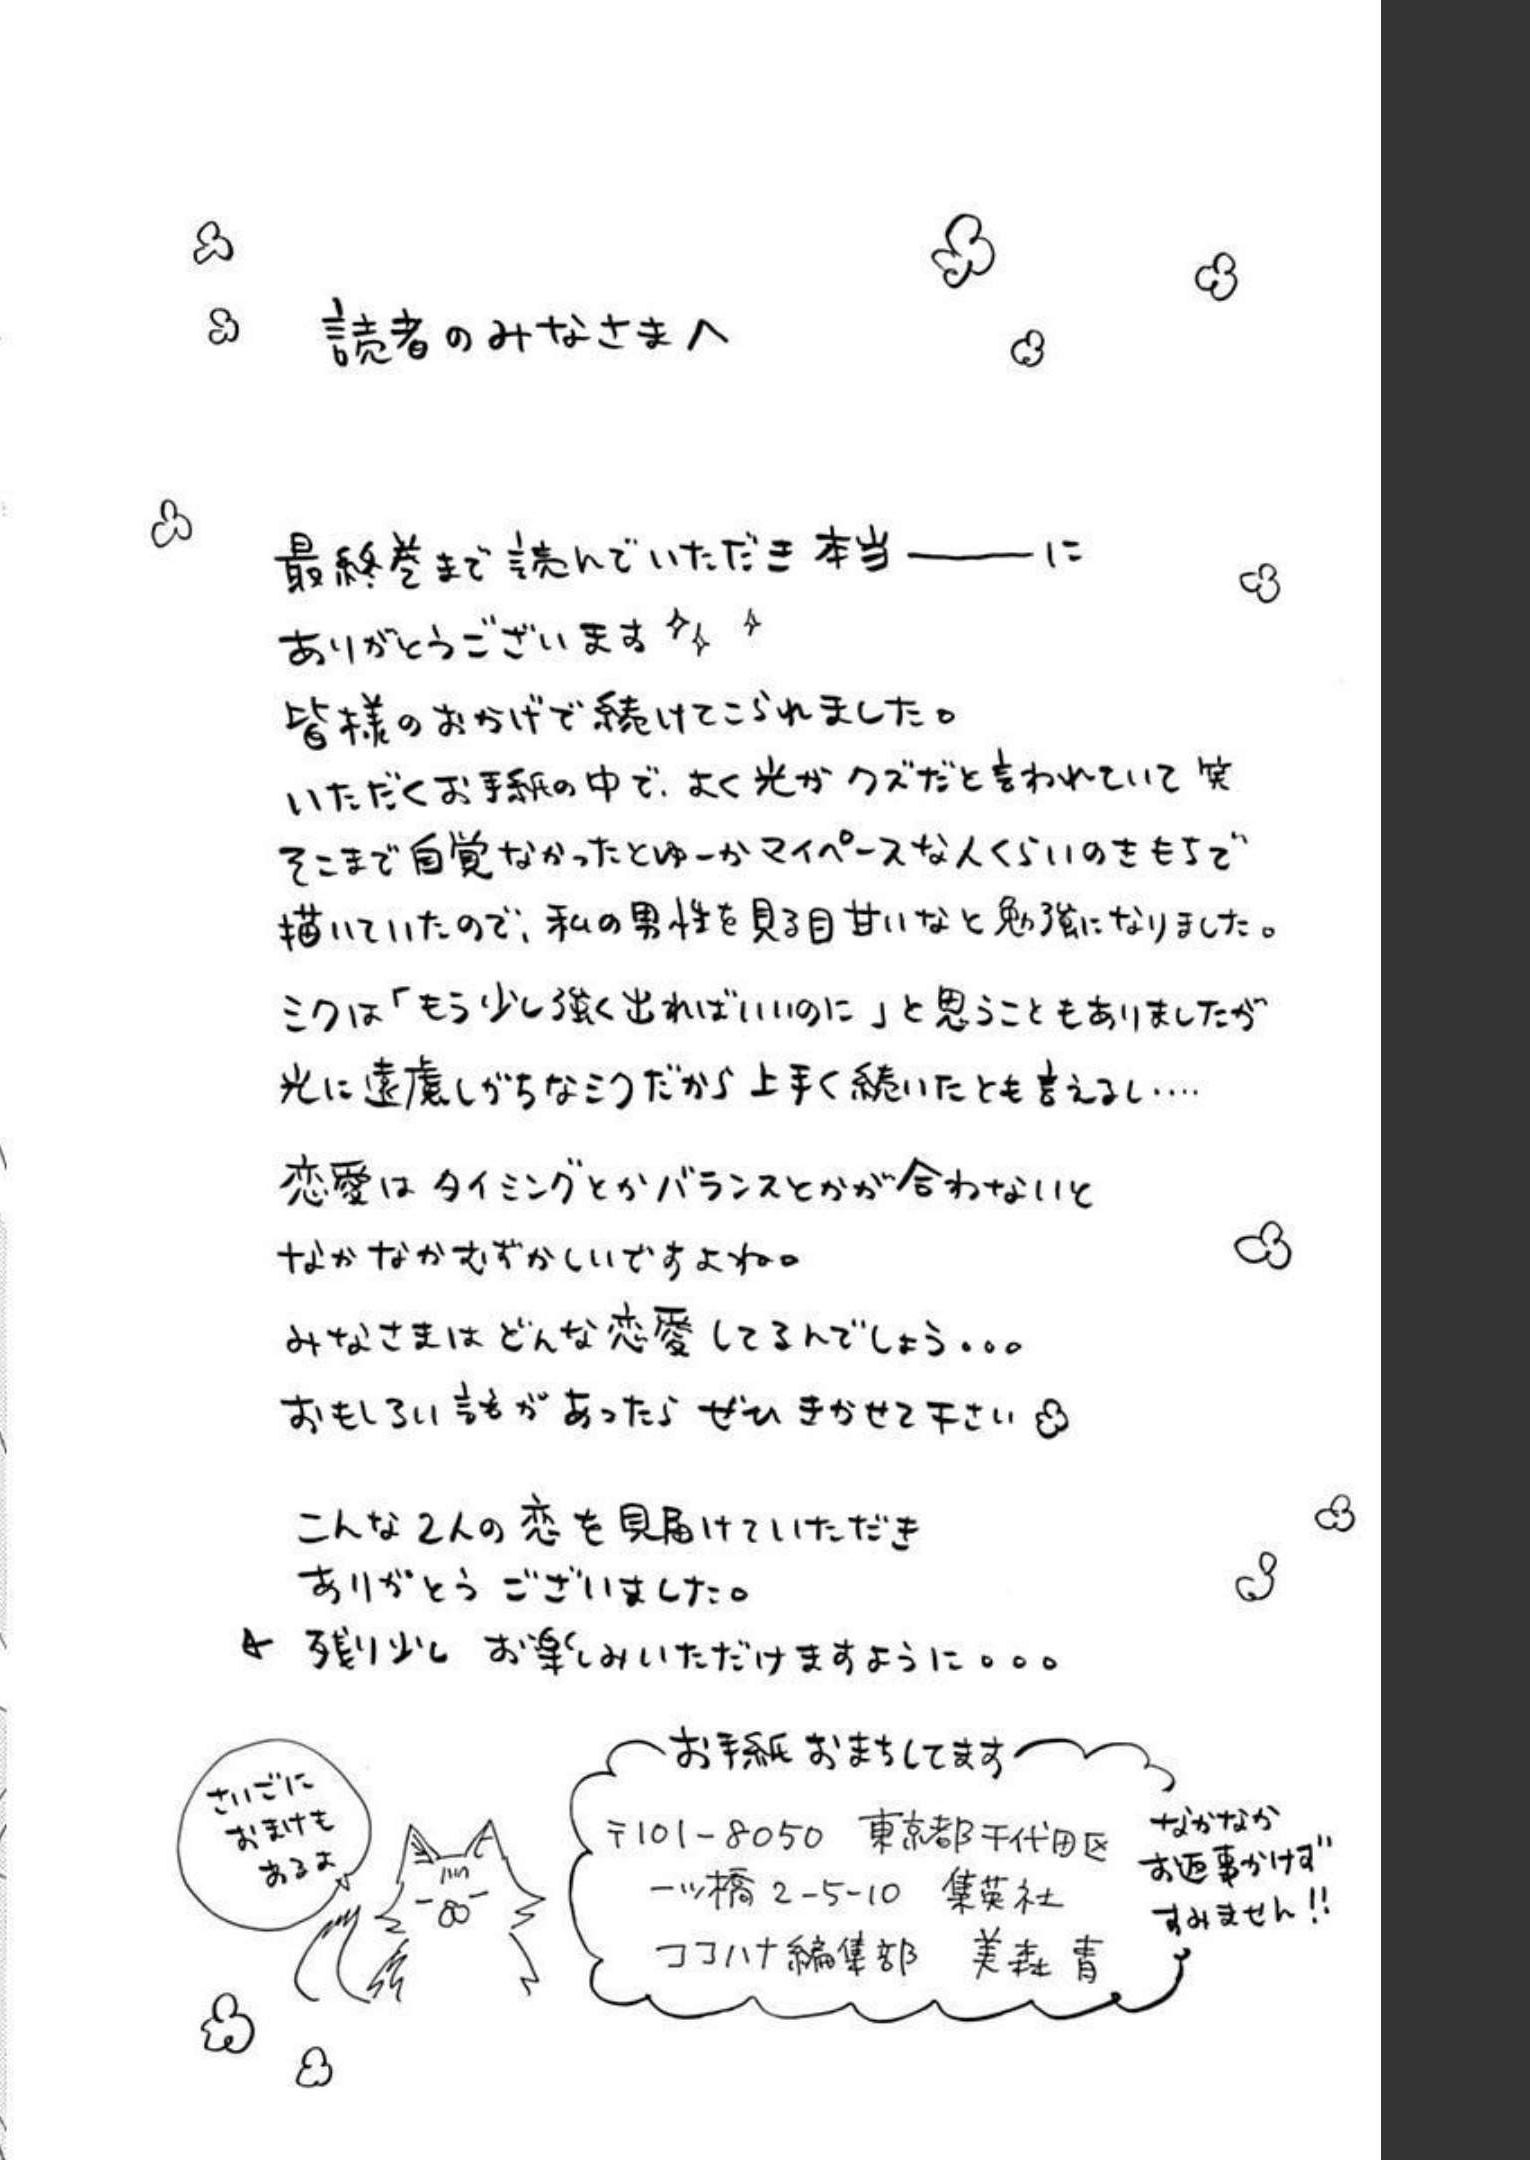 読者のみなさまへ
最終巻まで読んでいただき本当――に
ありがとうございます
皆様のおかげで続けてこられました。
いただくお手紙の中で、よく光がクズだと言われていて笑
そこまで自覚なかったとゆーかマイペースな人くらいのきもちで
描いていたので、私の男性を見る目甘いなと勉強になりました。
ミクは「もう少し強く出ればいいのに」と思うこともありましたが
光に遠慮しがちなミクだから上手く続いたとも言えるし‥‥
恋愛はタイミングとかバランスとかが合わないと
なかなかむずかしいですよね。
みなさまはどんな恋愛してるんでしょう。。。
おもしろい話があったらぜひきかせて下さい
こんな2人の恋を見届けていただき
ありがとうございました。
残り少し お楽しみいただけますように。。。
さいごに
おまけも
あるよ
お手紙おまちしてます
〒101-8050 東京都千代田区
一ツ橋2-5-10 集英社
ココハナ編集部 美森青
なかなか
お返事かけず
すみません!!